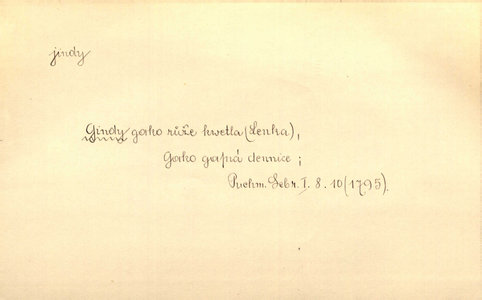 jindy
Gindy gako růže kwetla (Lenka),
Gako gasná dennice;
Puchm. Sebr. I. 8. 10 (1795).